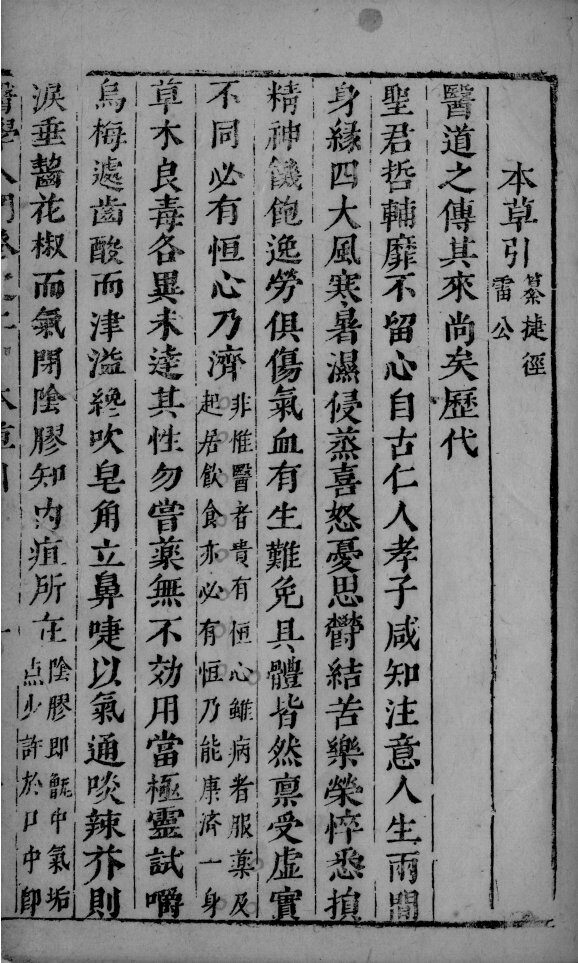 本草引 纂捷徑
雷公
醫道之傳其來尚矣歷代
聖君哲輔靡不留心自古仁人孝子咸知注意人生兩間
身緣四大風寒暑濕侵蒸喜怒憂思欝結苦樂榮悴悉損
精神饑飽逸勞俱傷氣血有生難免具體皆然禀受虛實
不同必有恒心乃濟 非惟醫者貴有恒心雖病者服藥及
起居飲食亦必有恒乃能康濟一身
草木良毒各異未達其性勿嘗藥無不効用當極靈試嚼
烏梅遽齒酸而津溢纔吹皂角立鼻㖷以氣通啖辣芥則
淚垂齧花椒而氣閉陰膠知內疽所在 陰膠即甑中氣垢
点少許於口中即
醫學入門卷之二 本草引 一